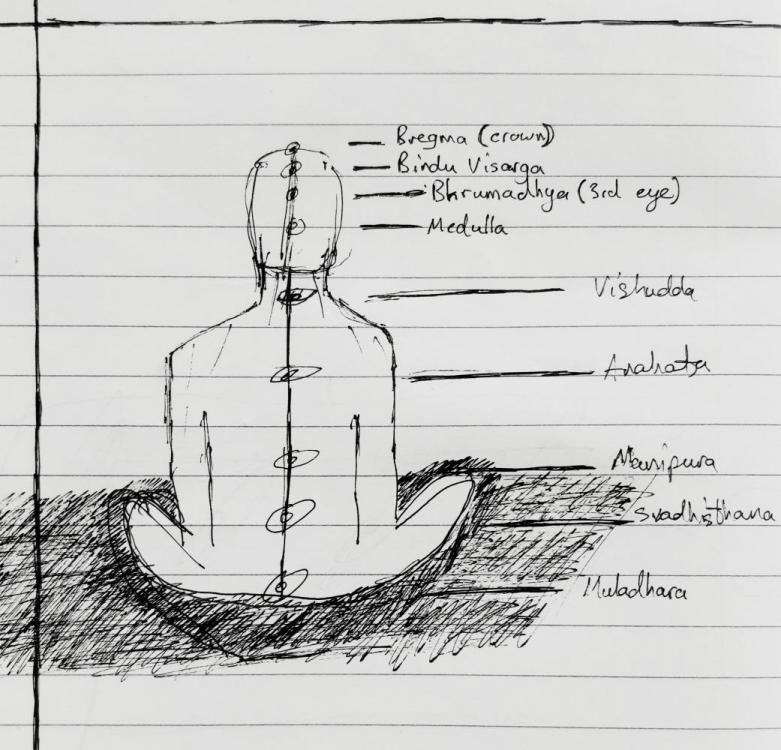 Bregma (crown)
Bindu Visarga
Bhrumadhya (3rd eye)
Medulla
Vishudda
Anahata
Manipura
Svadhisthana
Muladhara